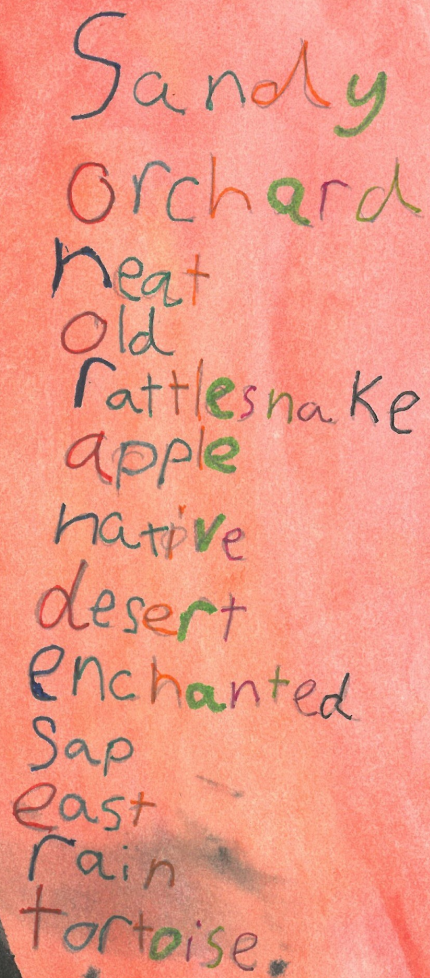 Sandy
orchard
neat
old
rattlesnake
apple
native
desert
enchanted
sap
east
rain
tortoise.